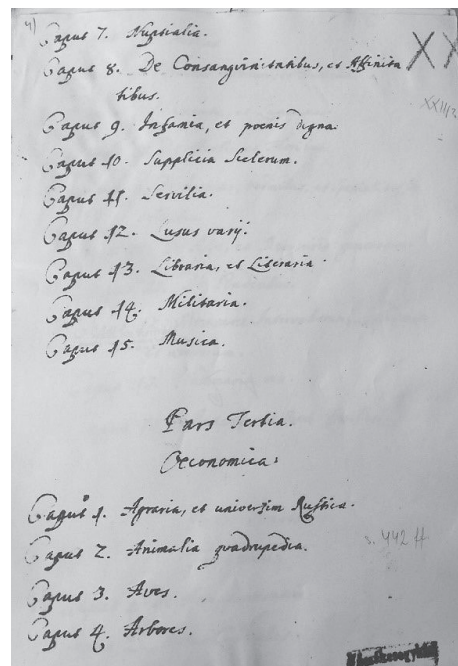 4)
Caput 7. Nuptialia.
Caput 8. De Consangvinitatibus, et Affinita
tibus.
Caput 9. Infamia, et poenis digna.
Caput 10. Supplicia Scelerum.
Caput 11. Servilia.
Caput 12. Lusus varij.
Caput 13. Libraria, et Literaria.
Caput 14. Militaria.
Caput 15. Musica.
Pars Tertia.
Oeconomica:
Caput 1. Agraria, et universim Rustica.
Caput 2. Animalia qvadrupedia.
s. 442 ff
Caput 3. Aves.
Caput 4. Arbores.